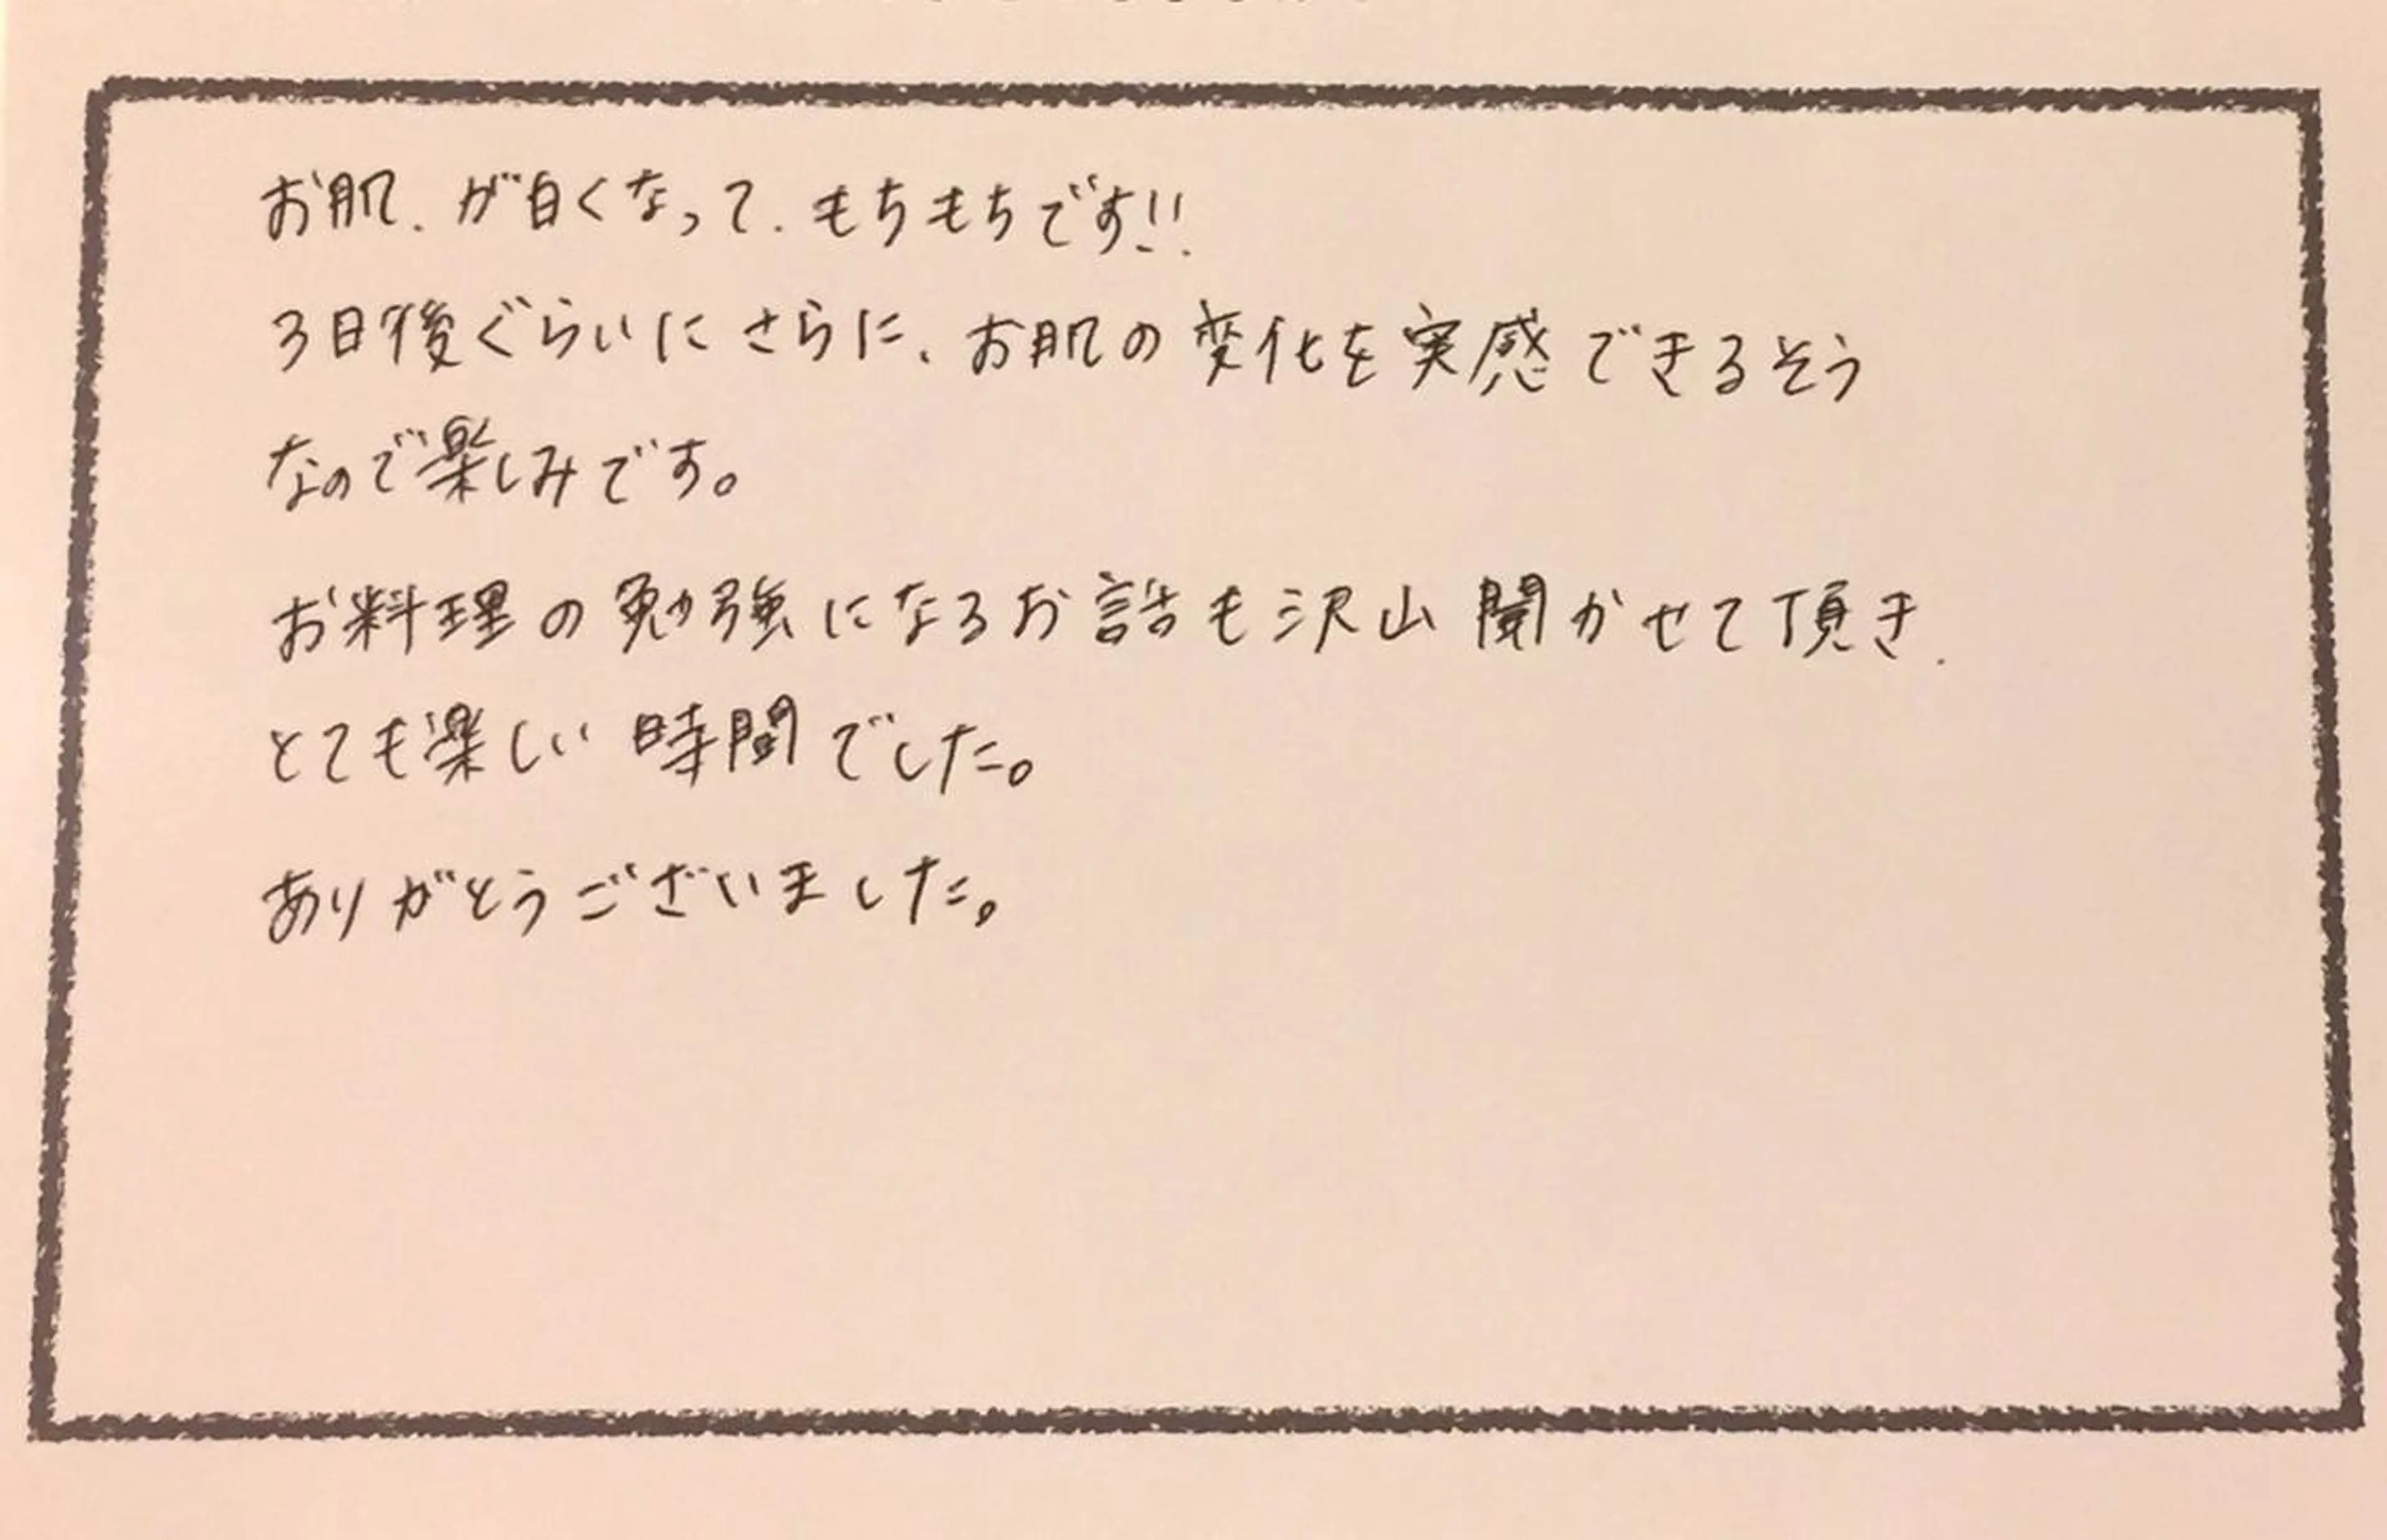 お肌、が白くなって、もちもちです!!
3日後ぐらいにさらに、お肌の変化を実感できるそう
なので楽しみです。
お料理の勉強になるお話も沢山聞かせて頂き、
とても楽しい時間でした。
ありがとうございました。